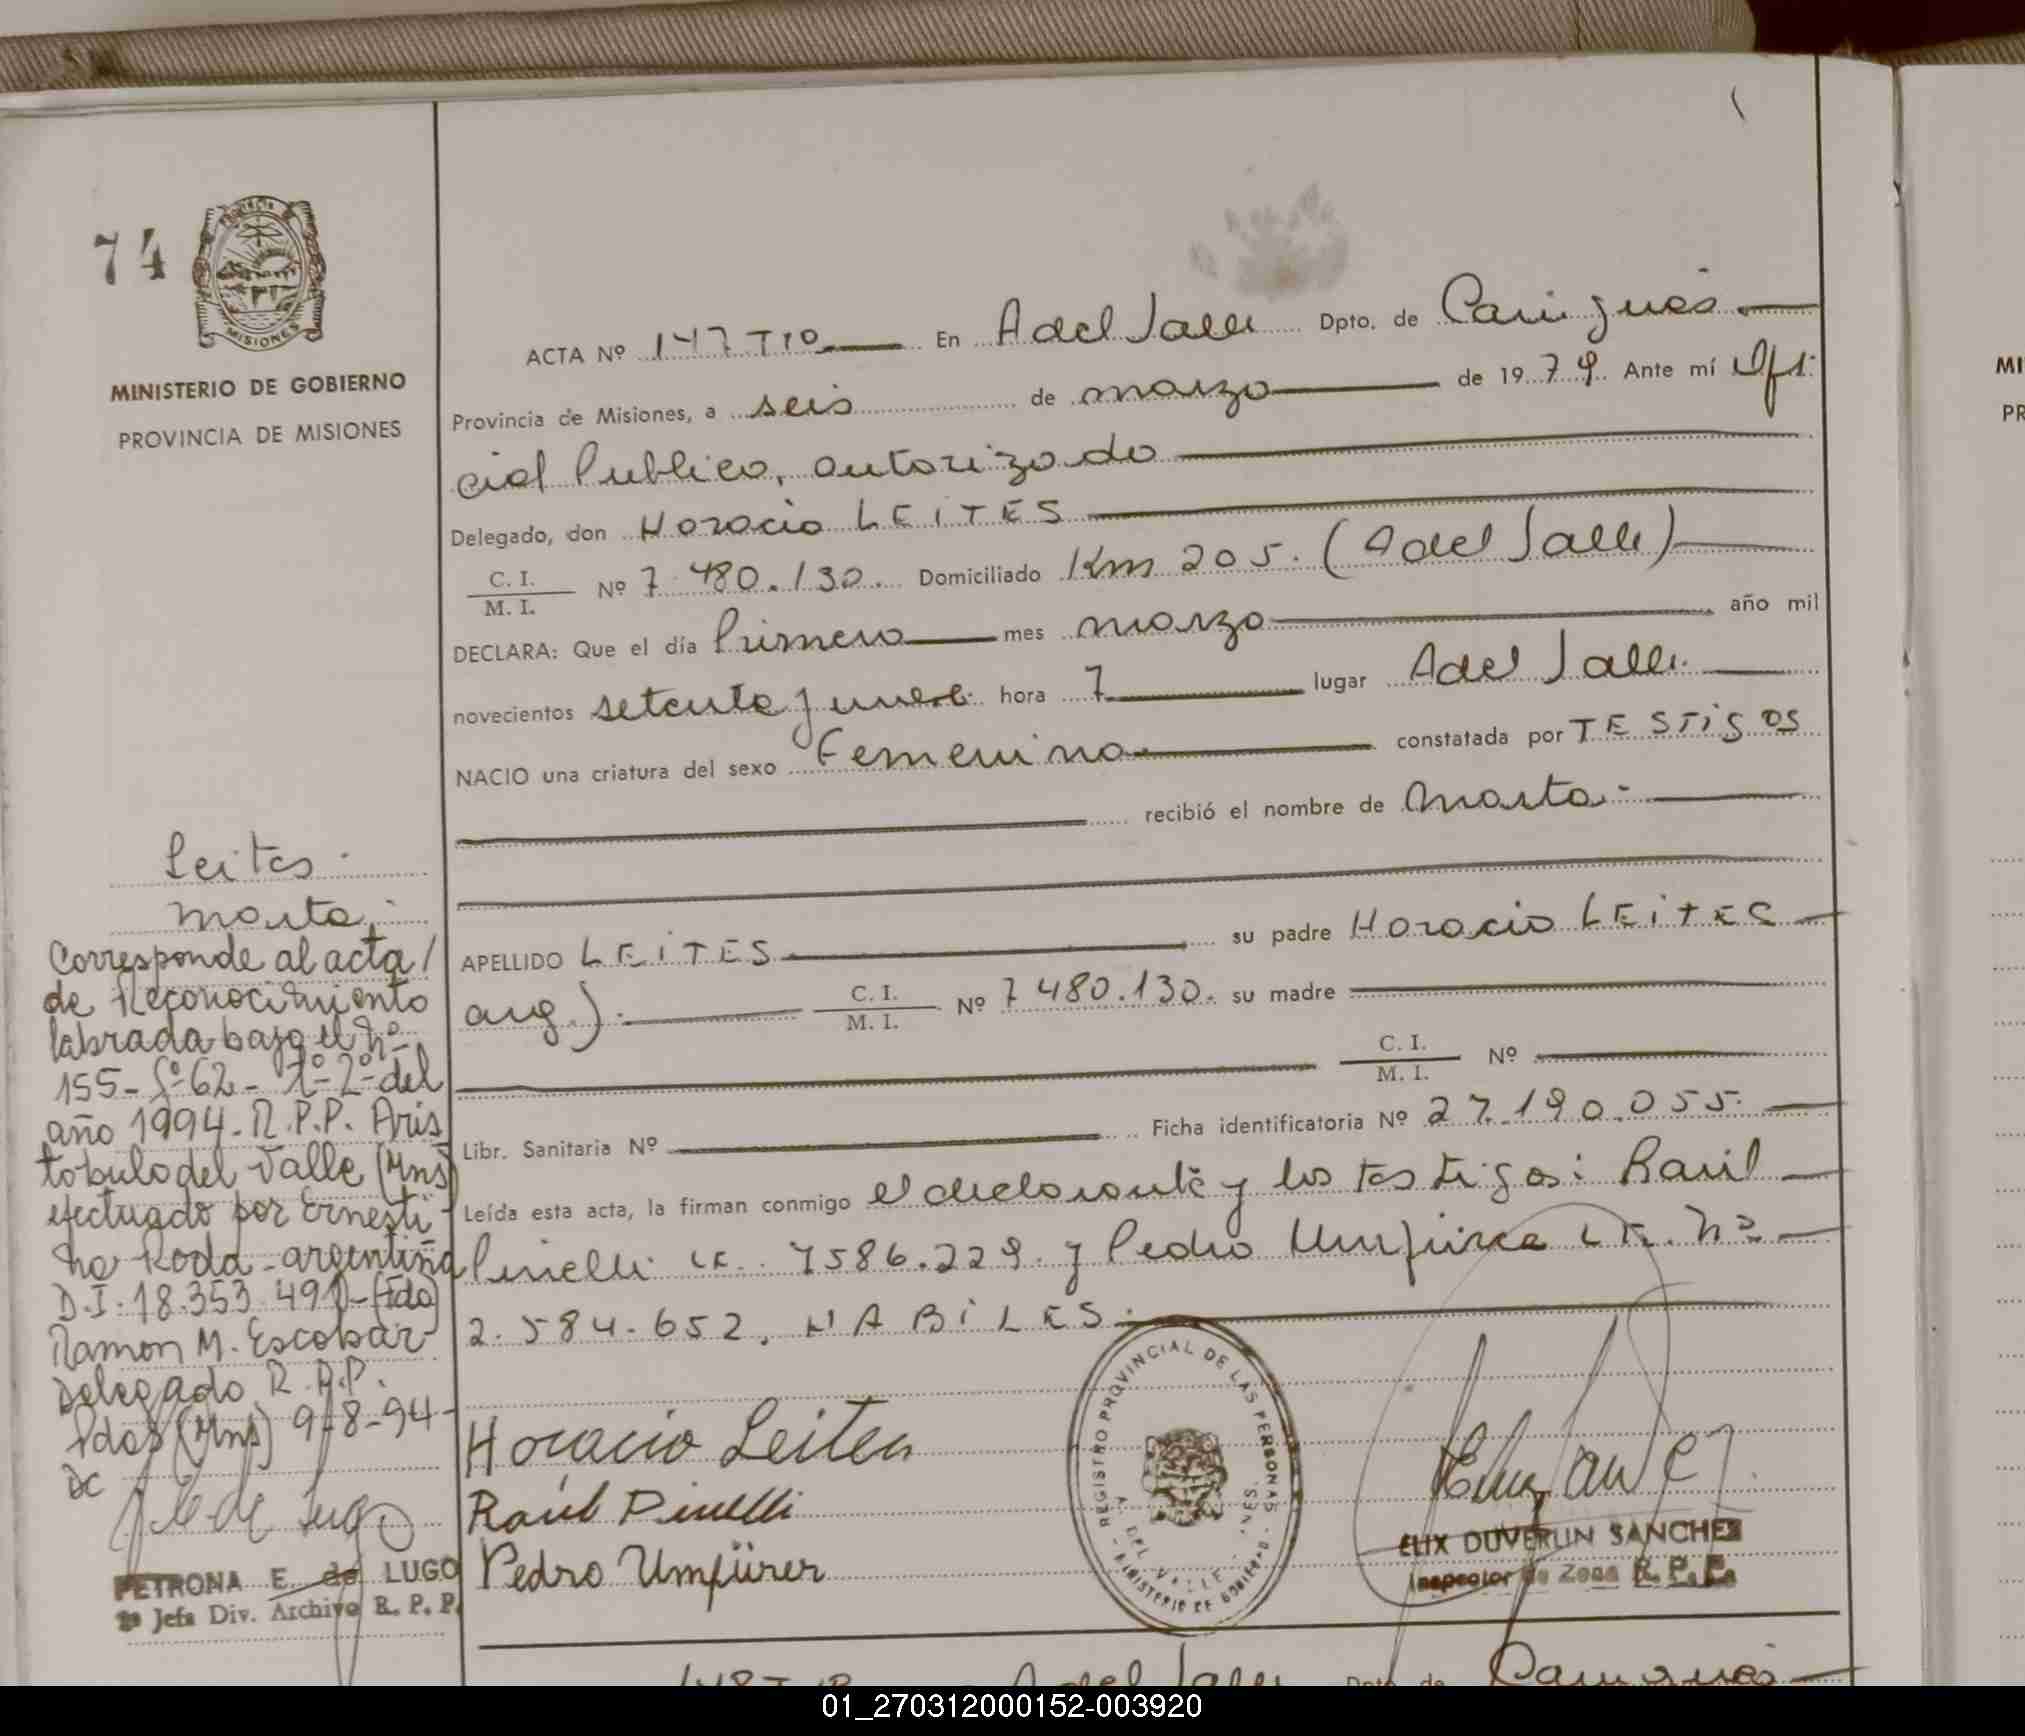 74
PROVINCIA DE
MISIONES
MINISTERIO DE GOBIERNO
PROVINCIA DE MISIONES
ACTA Nº 147 Tº 1º En A del Valle Dpto. de Cainguás
Provincia de Misiones, a seis de marzo de 1979. Ante mí Ofi
cial Publico, autorizado
Delegado, don Horacio LEITES
C. I.
M. I. Nº 7.480.130. Domiciliado Km 205. (A del Valle)
DECLARA: Que el día Primero mes marzo año mil
novecientos setenta y nueve hora 7 lugar A del Valle.
NACIO una criatura del sexo Femenino constatada por TESTigos
recibió el nombre de Marta.
APELLIDO LEITES su padre Horacio LEITES
arg.). C. I.
M. I. Nº 7.480.130. su madre
C. I.
M. I. Nº
Libr. Sanitaria Nº Ficha identificatoria Nº 27.190.055.
Leída esta acta, la firman conmigo el declarante y los testigos: Raul
Pinelli LE. 7586.229. y Pedro Umfürer LE. Nº
2.584.652, HABILES.
Horacio Leites
Raúl Pinelli
Pedro Umfürer
REGISTRO PROVINCIAL DE LAS PERSONAS
A. DEL VALLE
MINISTERIO DE GOBIERNO
ELIX DUVERLIN SANCHEZ
Inspector de Zona R. P. P.
Leites
Marta
Corresponde al acta/
de Reconocimiento
labrada bajo el Nº
155-Fº 62- Tº-2º-del
año 1994. R.P.P. Aris
tobulo del Valle (Mns)
efectuado por Ernesti
na Roda-argentina
D.I. 18.353.491-(Fdo)
Ramon M. Escobar
Delegado R.P.P.
Pdas (Mns) 9-8-94-
DC
PETRONA E. de LUGO
Jefa Div. Archivo R. P. P.
148 Tº 1º A del Valle Dpto. de Cainguás
MI
PR
01_270312000152-003920